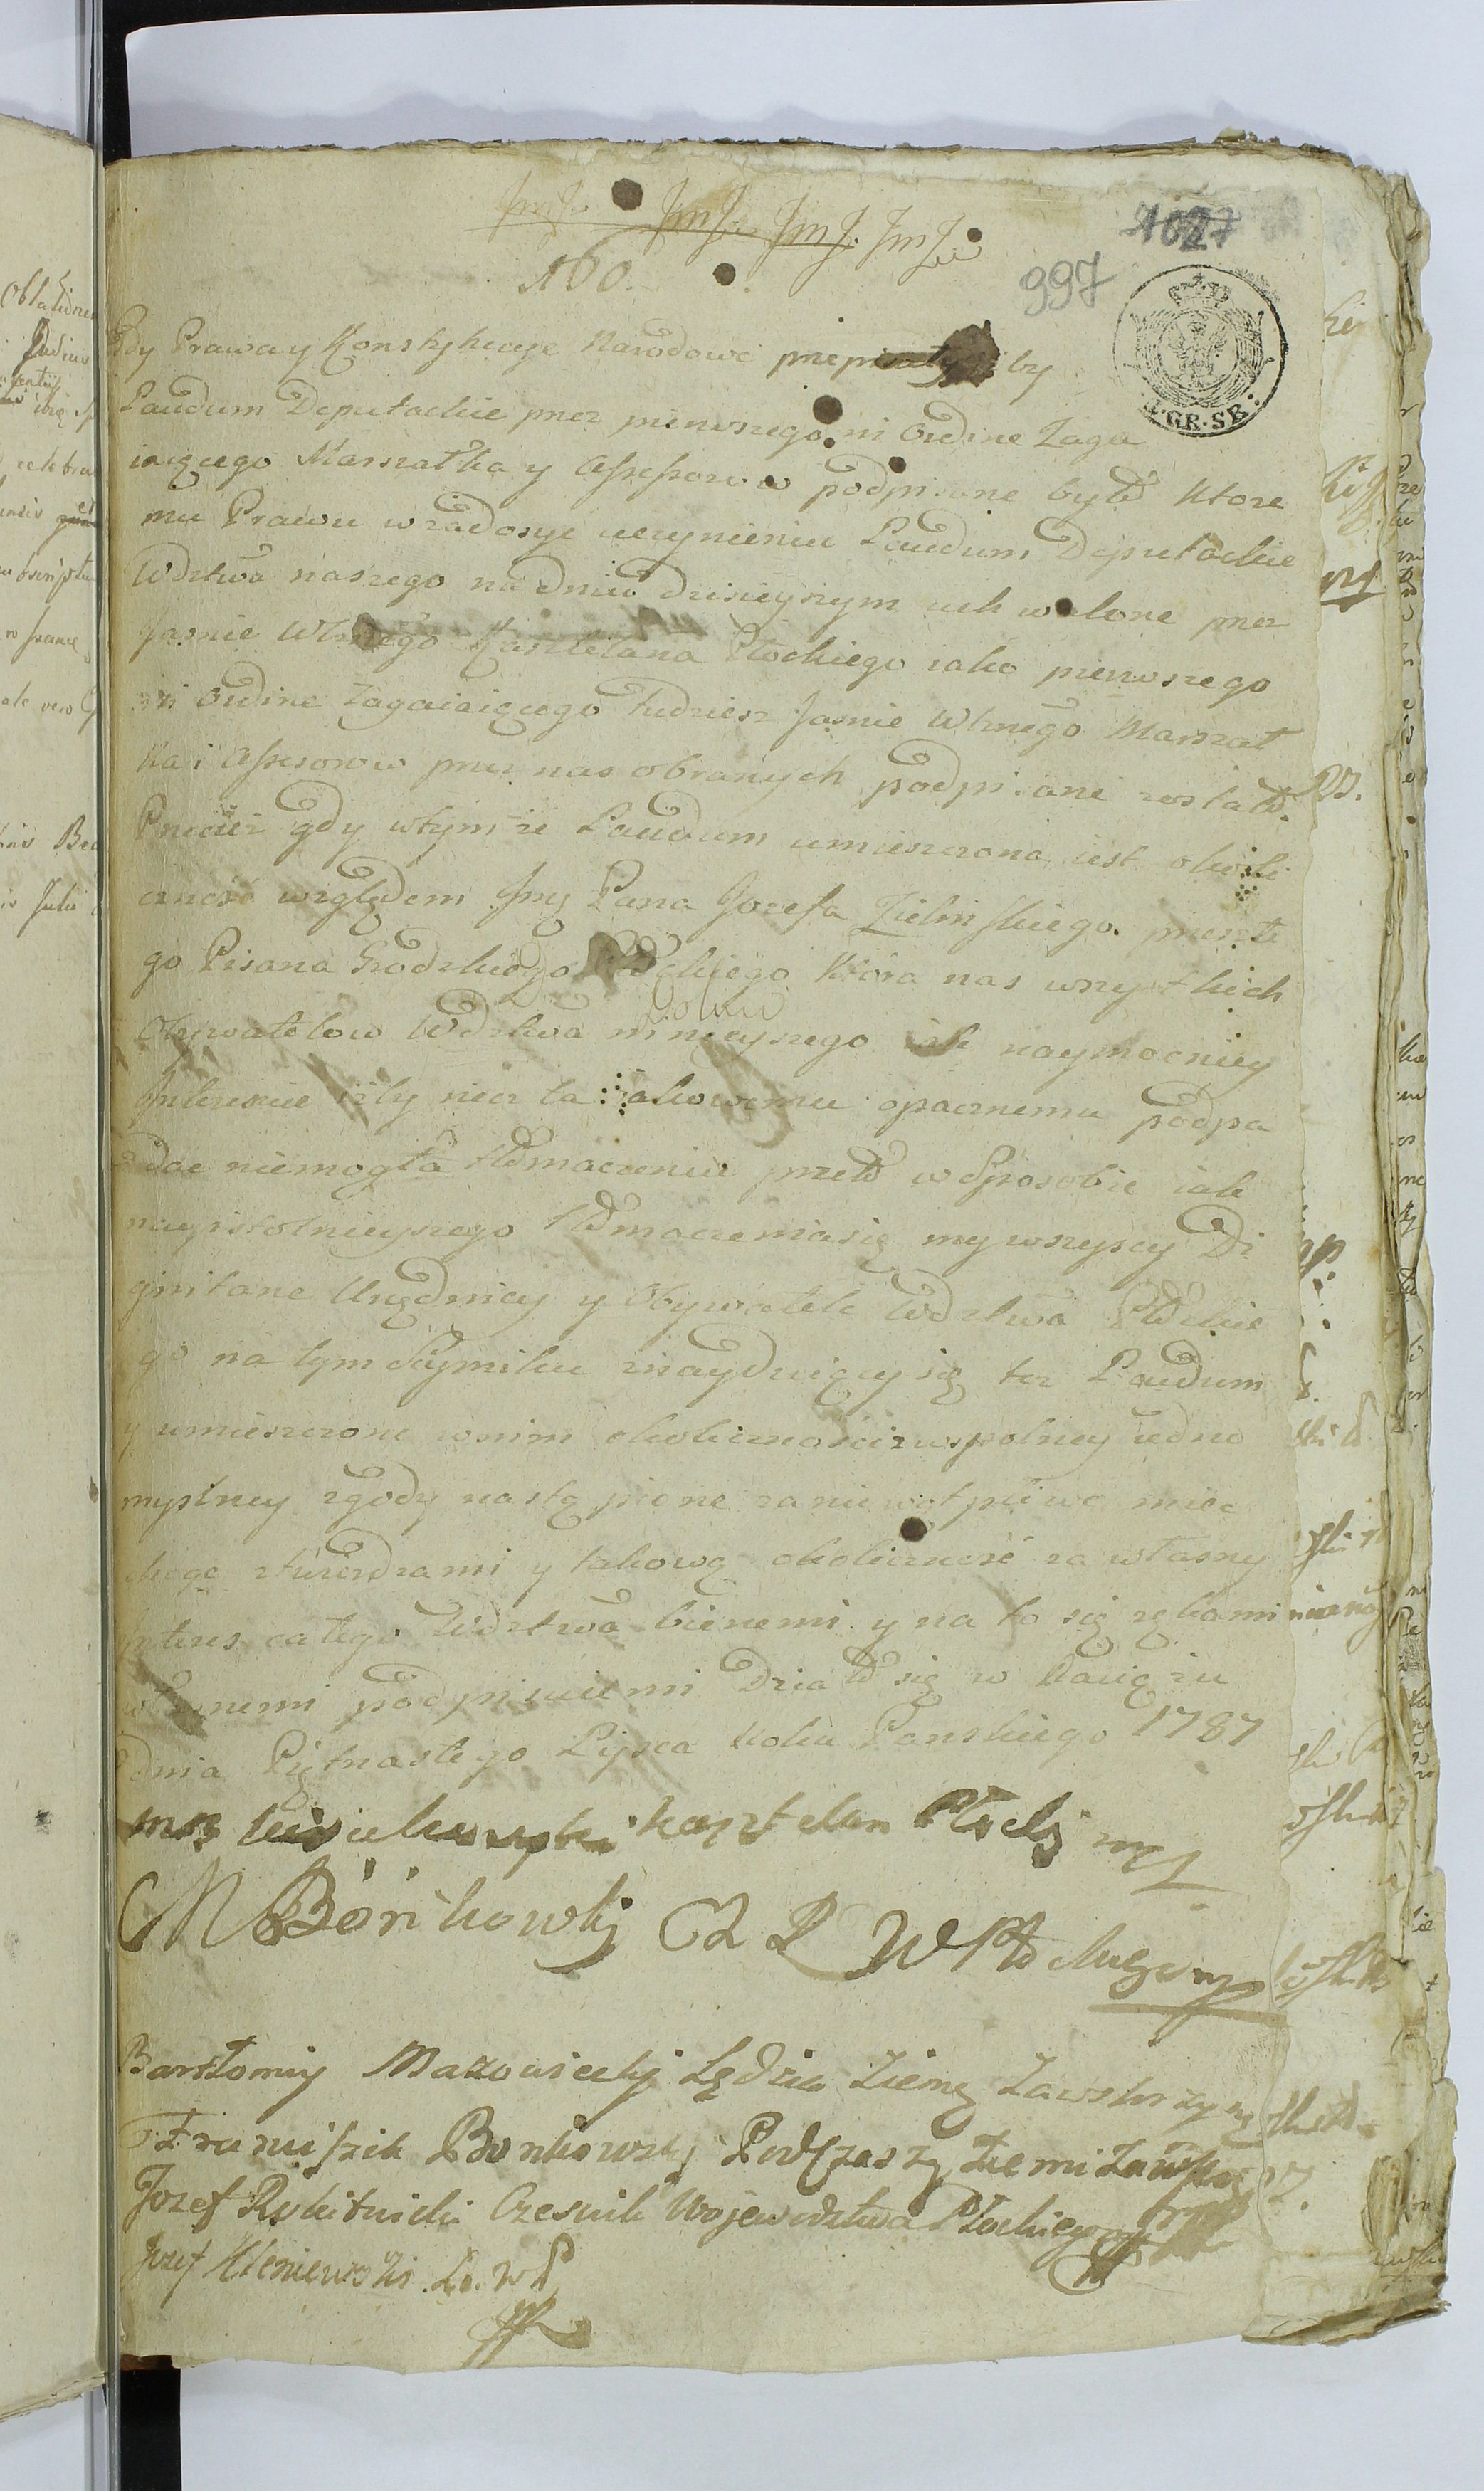 160.
1027
997
GR·SR·
Gdy Prawa y Konstytucye Narodowe by
Laudum Deputackie przez pierwszego in Ordine Zaga
iaiącego Marszałka y Assessorow podpisane było Ktore
mu Prawu w zadosyc uczynieniu Laudum Deputackie
Wdztwa naszego na dniu dzisieyszym uchwalone przez
Jasnie Wlnego Kasztelana Płockiego iako pierwszego
in Ordine Zagaiaiącego tudziesz Jasnie Wlnego Marszał
ka i Assesorow przez nas obranych podpisane zostało.
Przecież gdy wtymże Laudum umieszczona iest okoli
czność względem Jmci Pana Jozefa Zielinskiego przeszłe
go Pisarza Grodzkiego Płockiego Która nas wszystkich
Obywatelow Wdztwa ninieyszego iak naymocniey
Interesuie iżby niez ta iakowemu opacznemu podpa
dac niemogła tłomaczeniu przeto w Sposobie iak
nayistotnieyszego tłomaczenia się my wszyscy Di
gnitarze Urzędnicy y Obywatele Wdztwa Płockie
go na tym Seymiku znayduiący się tez Laudum
y umieszczone wnim okoliczności z wspolney iedno
myslney zgody nastąpione za niewątpliwe miec
chcąc ztwierdzamy y takową okoliczność za własny
Interes całego Wdztwa bierzemy y na to się rękami
własnemi podpisuiemy Działo się w Raciążu
Dnia Piętnastego Lipca Roku Panskiego 1787
kasztelan Płocki mp
M Bońkowski Ch P W Płockiego mp
Bartłomiey Mazowiecki Sędzia Ziemę Zawskrzyn
Franciszek Bonkowski Podczaszy Ziemi Zawskrz
Jozef Rokitnicki Czesnik Wojewodztwa Płockiego mp
Jozef Kleniewski Ł. W P